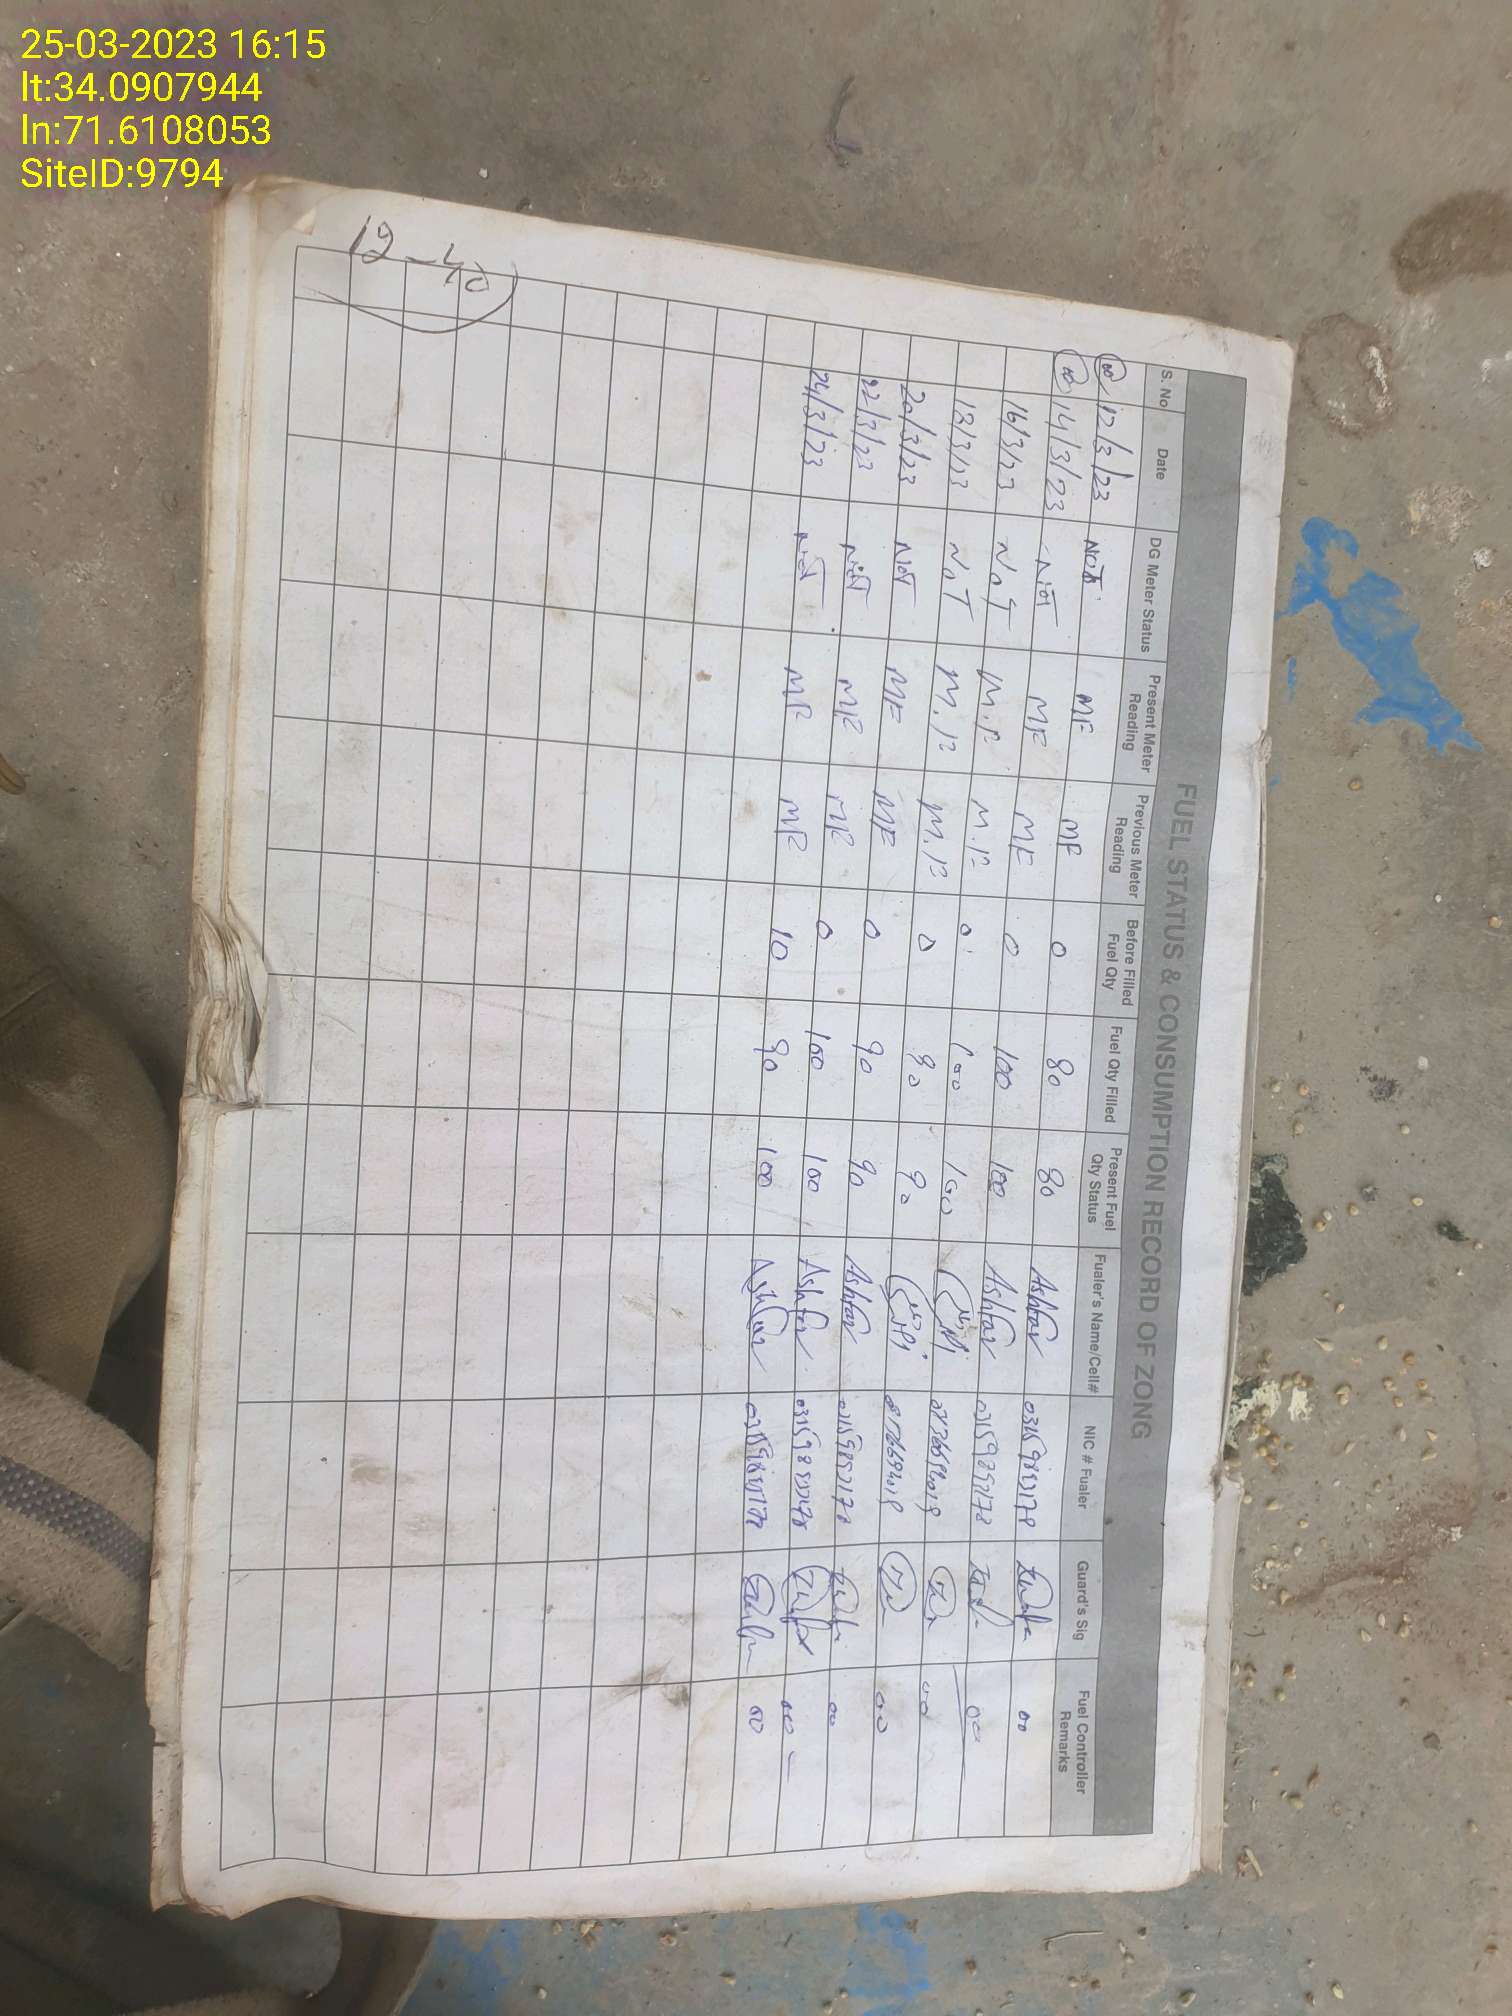 25-03-2023 16:15
lt:34.0907944
ln:71.6108053
SiteID:9794
FUEL STATUS & CONSUMPTION RECORD OF ZONG
S. No Date DG Meter Status Present Meter Reading Previous Meter Reading Before Filled Fuel Qty Fuel Qty Filled Present Fuel Qty Status Fualer's Name/Cell# NIC # Fualer Guard's Sig Fuel Controller Remarks
12/3/23 NOT MF MF 0 80 80 Ashfaq 00
14/3/23 NOT MF MF 0 100 100 Ashfaq 00
16/3/23 NOT M.F M.F 0 100 100 00
18/3/23 NOT M.F M.F 0 90 90 00
20/3/23 NOT MF MF 0 90 90 Ashfaq 00
22/3/23 NOT MF MF 0 100 100 Ashfaq 00
24/3/23 NOT MF MF 10 90 100 Ashfaq 00
12-40